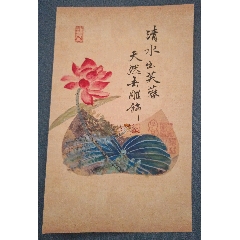 清水出芙蓉
天然去雕飾